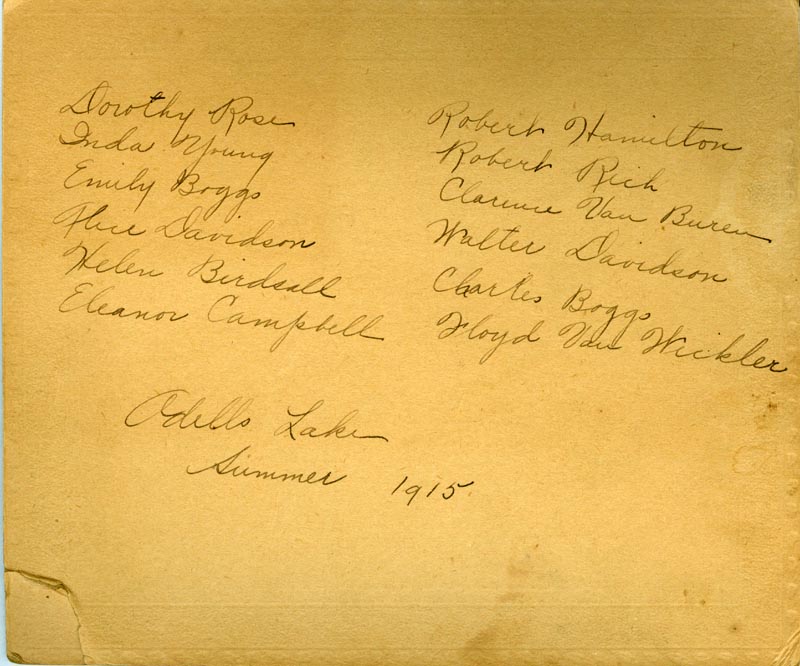 Dorothy Rose
Inda Young
Emily Boggs
Davidson
Helen Birdsall
Eleanor Campbell
Robert Hamilton
Robert Rich
Clarence Van Buren
Walter Davidson
Charles Boggs
Floyd Van Wickler
Odells Lake
Summer 1915